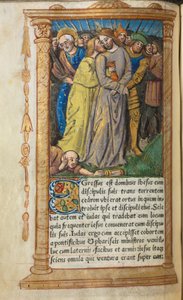 EGressus est dominus ihesus cum
discipulis suis trans torrentem
cedron vbi erat ortus in quem in
troiuit ipse et discipuli eius Scie
bat autem et Judas qui tradebat eum locum
quia frequenter iesus conuenerat cum discipulis
suis Judas ergo cum accepisset cohortem
a pontificibus et phariseis ministros venit il
luc cum laternis et facibus et armis iesus itaque
sciens omnia que ventura erant super eum